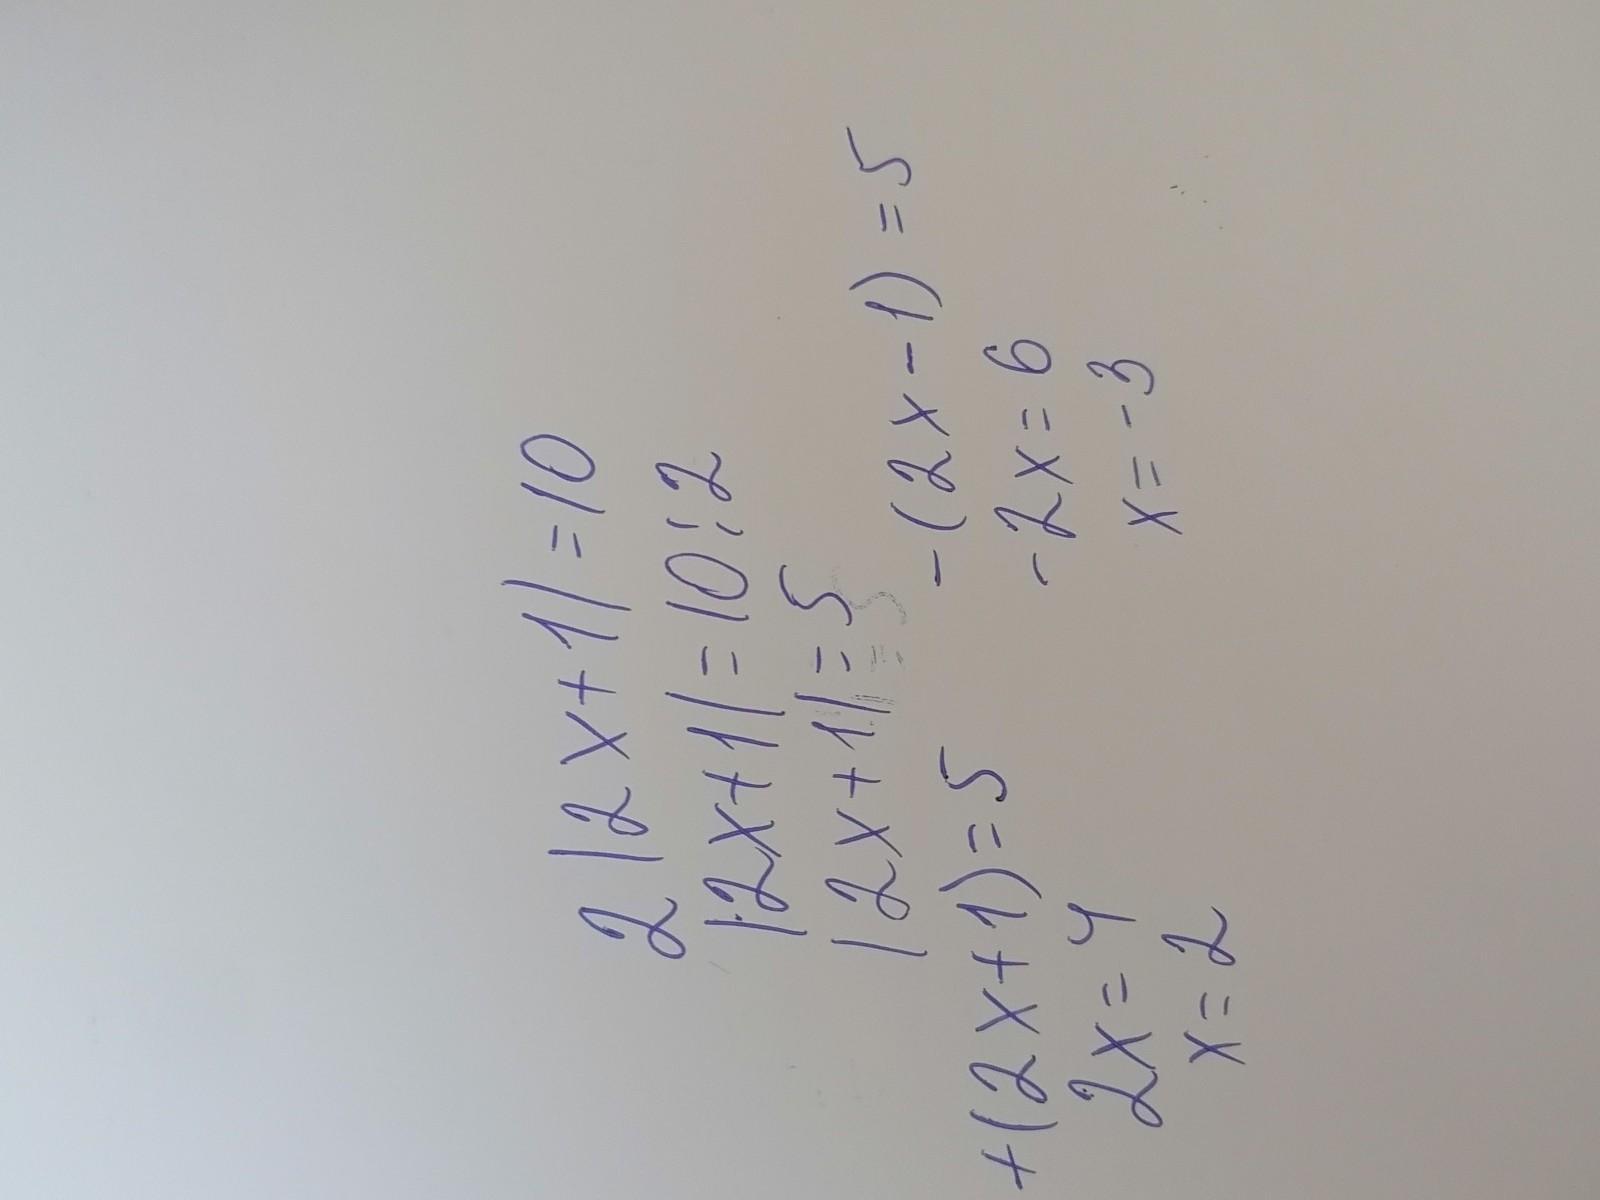 2|2x+1|=10
|2x+1|=10:2
|2x+1|=5
+(2x+1)=5 -(2x-1)=5
2x=4 -2x=6
x=2 x=-3